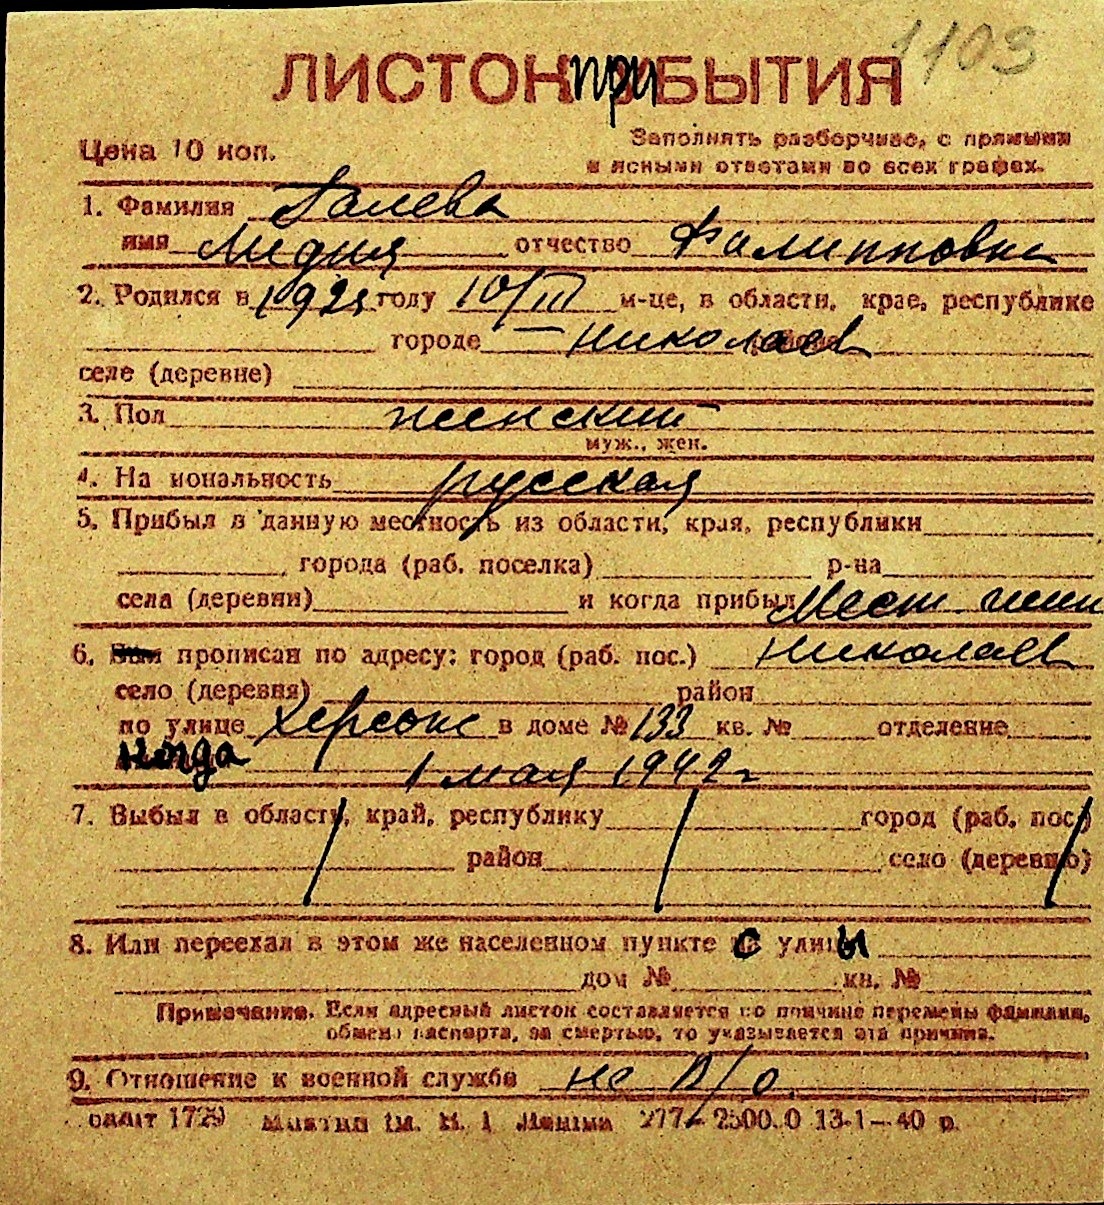 1103
ЛИСТОК ПРИБЫТИЯ
Цена 10 коп.
Заполнять разборчиво, с прямыми
и ясными ответами во всех графах.
1. Фамилия Галева
имя Лидия отчество Филипповна
2. Родился в 1921 году 10/III м-це, в области, крае, республике
городе Николаев
селе (деревне)
3. Пол женский
муж., жен.
4. На иональность русская
5. Прибыл в данную местность из области, края, республики
города (раб. поселка) р-на
села (деревни) и когда прибыл Мест. жит
6. прописан по адресу: город (раб. пос.) Николаев
село (деревня) район
по улице Херсонс в доме № 133 кв. № отделение
когда 1 мая 1942 г
7. Выбыл в область, край, республику город (раб. пос.)
район село (деревню)
8. Или переехал в этом же населенном пункте с улицы
дом № кв. №
Примечание. Если адресный листок составляется по причине перемены фамилии,
обмена паспорта, за смертью, то указывается эта причина.
9. Отношение к военной службе не в/о
1729 им. В. І Леніна 277 2500.0 13-1—40 р.